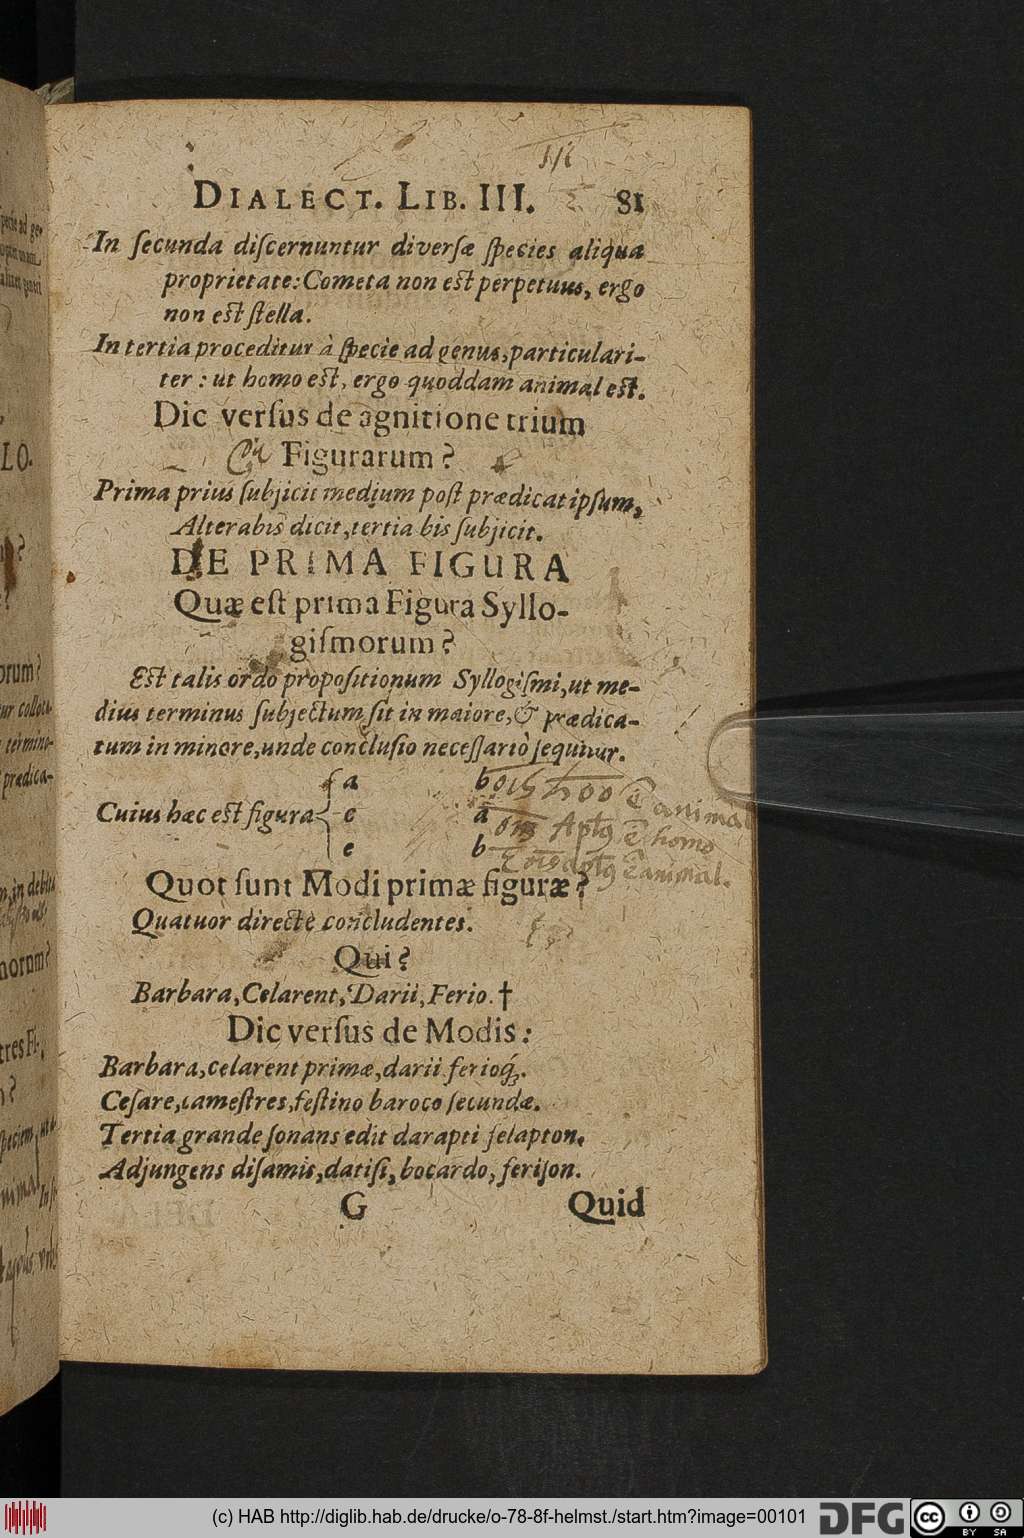 DIALECT. LIB. III. 81
In ſecunda diſcernuntur diverſæ ſpecies aliqua
proprietate: Cometa non eſt perpetuus, ergo
non eſt ſtella.
In tertia proceditur à ſpecie ad genus, particulari-
ter: ut homo eſt, ergo quoddam animal eſt.
Dic verſus de agnitione trium
Figurarum?
Prima prius ſubjicit medium poſt prædicat ipſum,
Altera bis dicit, tertia bis ſubjicit.
DE PRIMA FIGURA
Quæ eſt prima Figura Syllo-
giſmorum?
Eſt talis ordo propoſitionum Syllogiſmi, ut me-
dius terminus ſubjectum ſit in maiore, & prædica-
tum in minore, unde concluſio neceſſariò ſequitur.
a b
Cuius hæc eſt figura c a animal
e b homo
animal.
Quot ſunt Modi primæ figuræ?
Quatuor directè concludentes.
Qui?
Barbara, Celarent, Darii, Ferio. †
Dic verſus de Modis:
Barbara, celarent primæ, darii ferioq́;.
Ceſare, cameſtres, feſtino baroco ſecundæ.
Tertia grande ſonans edit darapti felapton.
Adjungens diſamis, datiſi, bocardo, feriſon.
G Quid
(c) HAB http://diglib.hab.de/drucke/o-78-8f-helmst./start.htm?image=00101 DFG cc BY SA